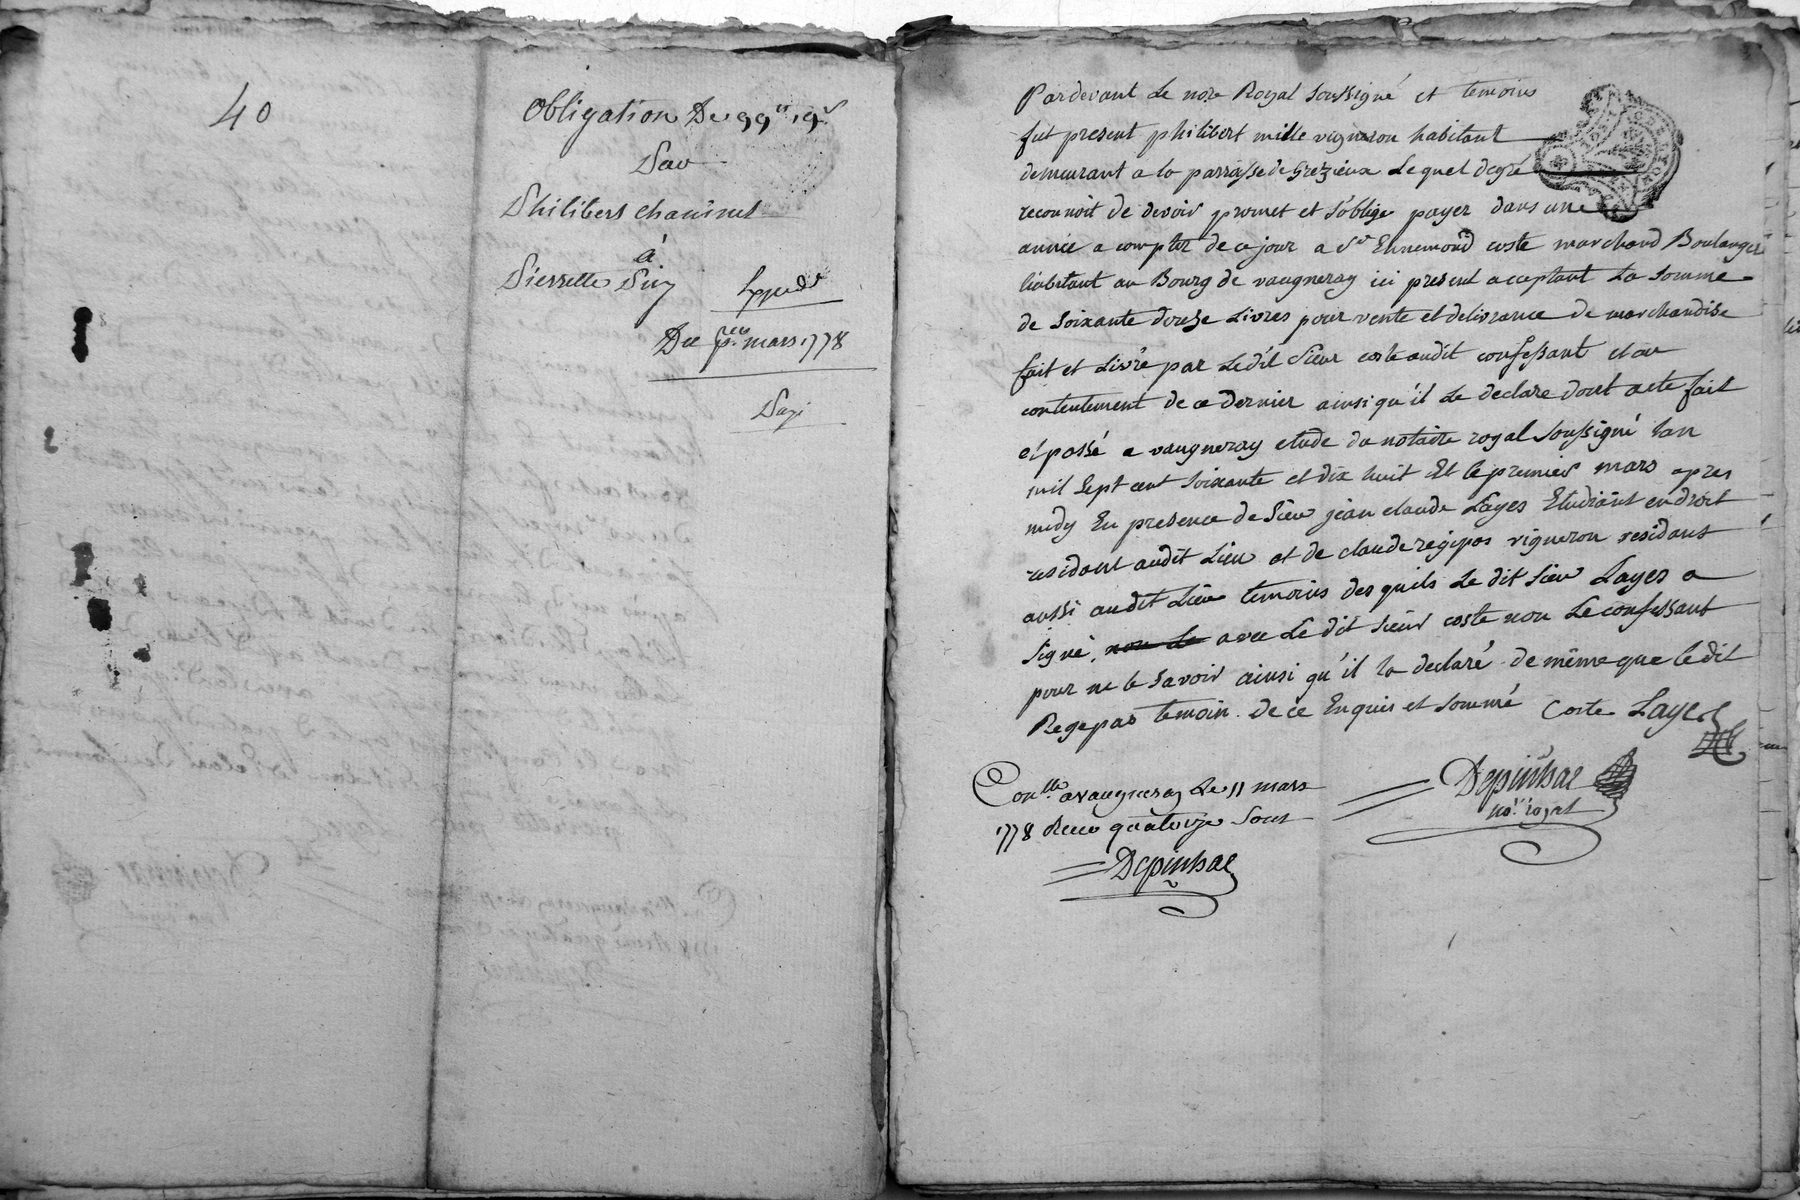 40
Obligation De 99ᵗᵗ 19ˢ
Par
Philibert chauinet
à
Pierrette
Expédⁱᵉ
Du pᵉʳ mars 1778
Payé
Pardevant Le nore Royal soussigné et temoins
fut present philibert mille vigneron habitant
demeurant a la parroisse de Grezieux Lequel degré
reconnoit de devoir promet et s'oblige payer dans une
année a compter de ce jour a Sʳ Ennemond coste marchand Boulanger
habitant au Bourg de vaugneray ici present acceptant La somme
de soixante douse Livres pour vente et delivrance de marchandise
fait et Livré par Ledit Sieur coste audit confessant et au
contentement de ce dernier ainsi qu'il Le declare dont acte fait
et passé a vaugneray etude du notaire royal soussigné Lan
mil sept cent soixante et dix huit Et le premier mars apres
midy En presence de Sieur jean claude Layes Etudiant en droit
residant audit Lieu et de claude regipas vigneron residant
aussi audit Lieu temoins desquels Le dit sieur Layes a
signé, non Le avec Le dit sieur coste non Le confessant
pour ne le savoir ainsi qu'il la declaré de même que ledit
Regepas temoin. de ce Enquis et sommé Coste Layes
Depinhac
noʳᵉ royal
Conˡˡᵉ a vaugneray Le 11 mars
1778 Reçu quatorze sous
Depinhac